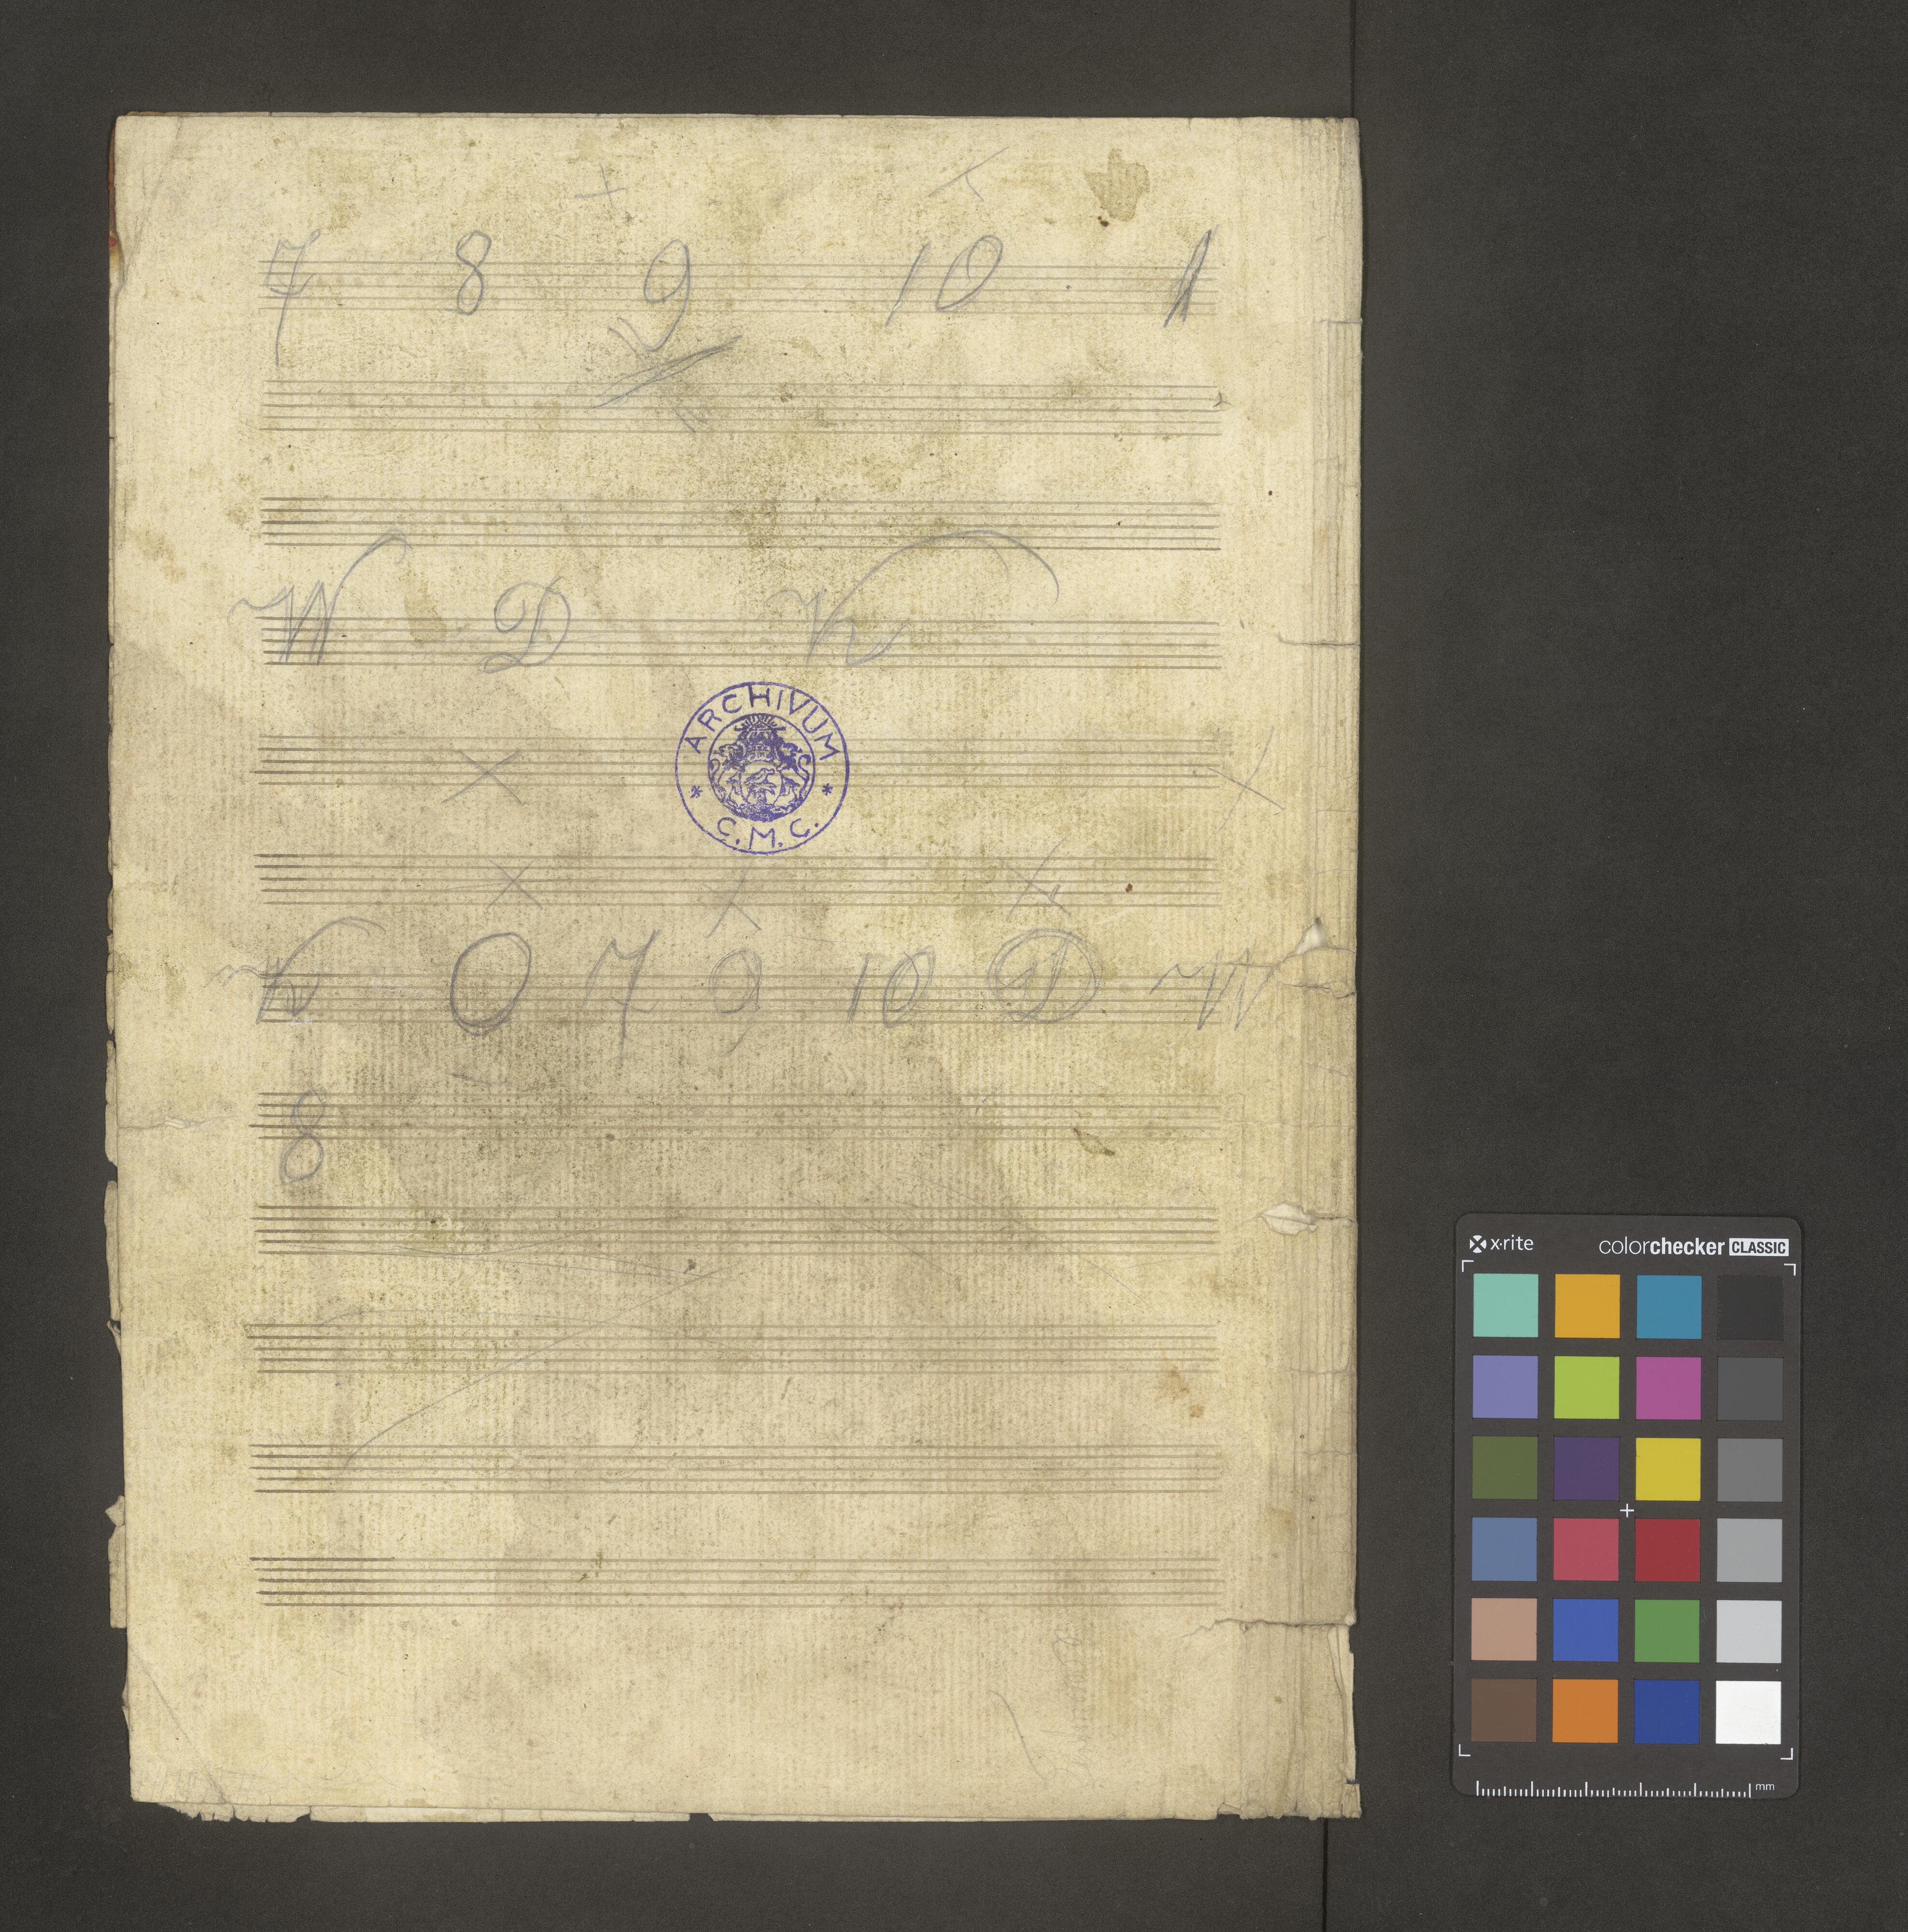 7 8 9 10 1
W D K
ARCHIVUM
* *
C. M. C.
K O 7 9 10 D W
8
x·rite colorchecker CLASSIC
mm